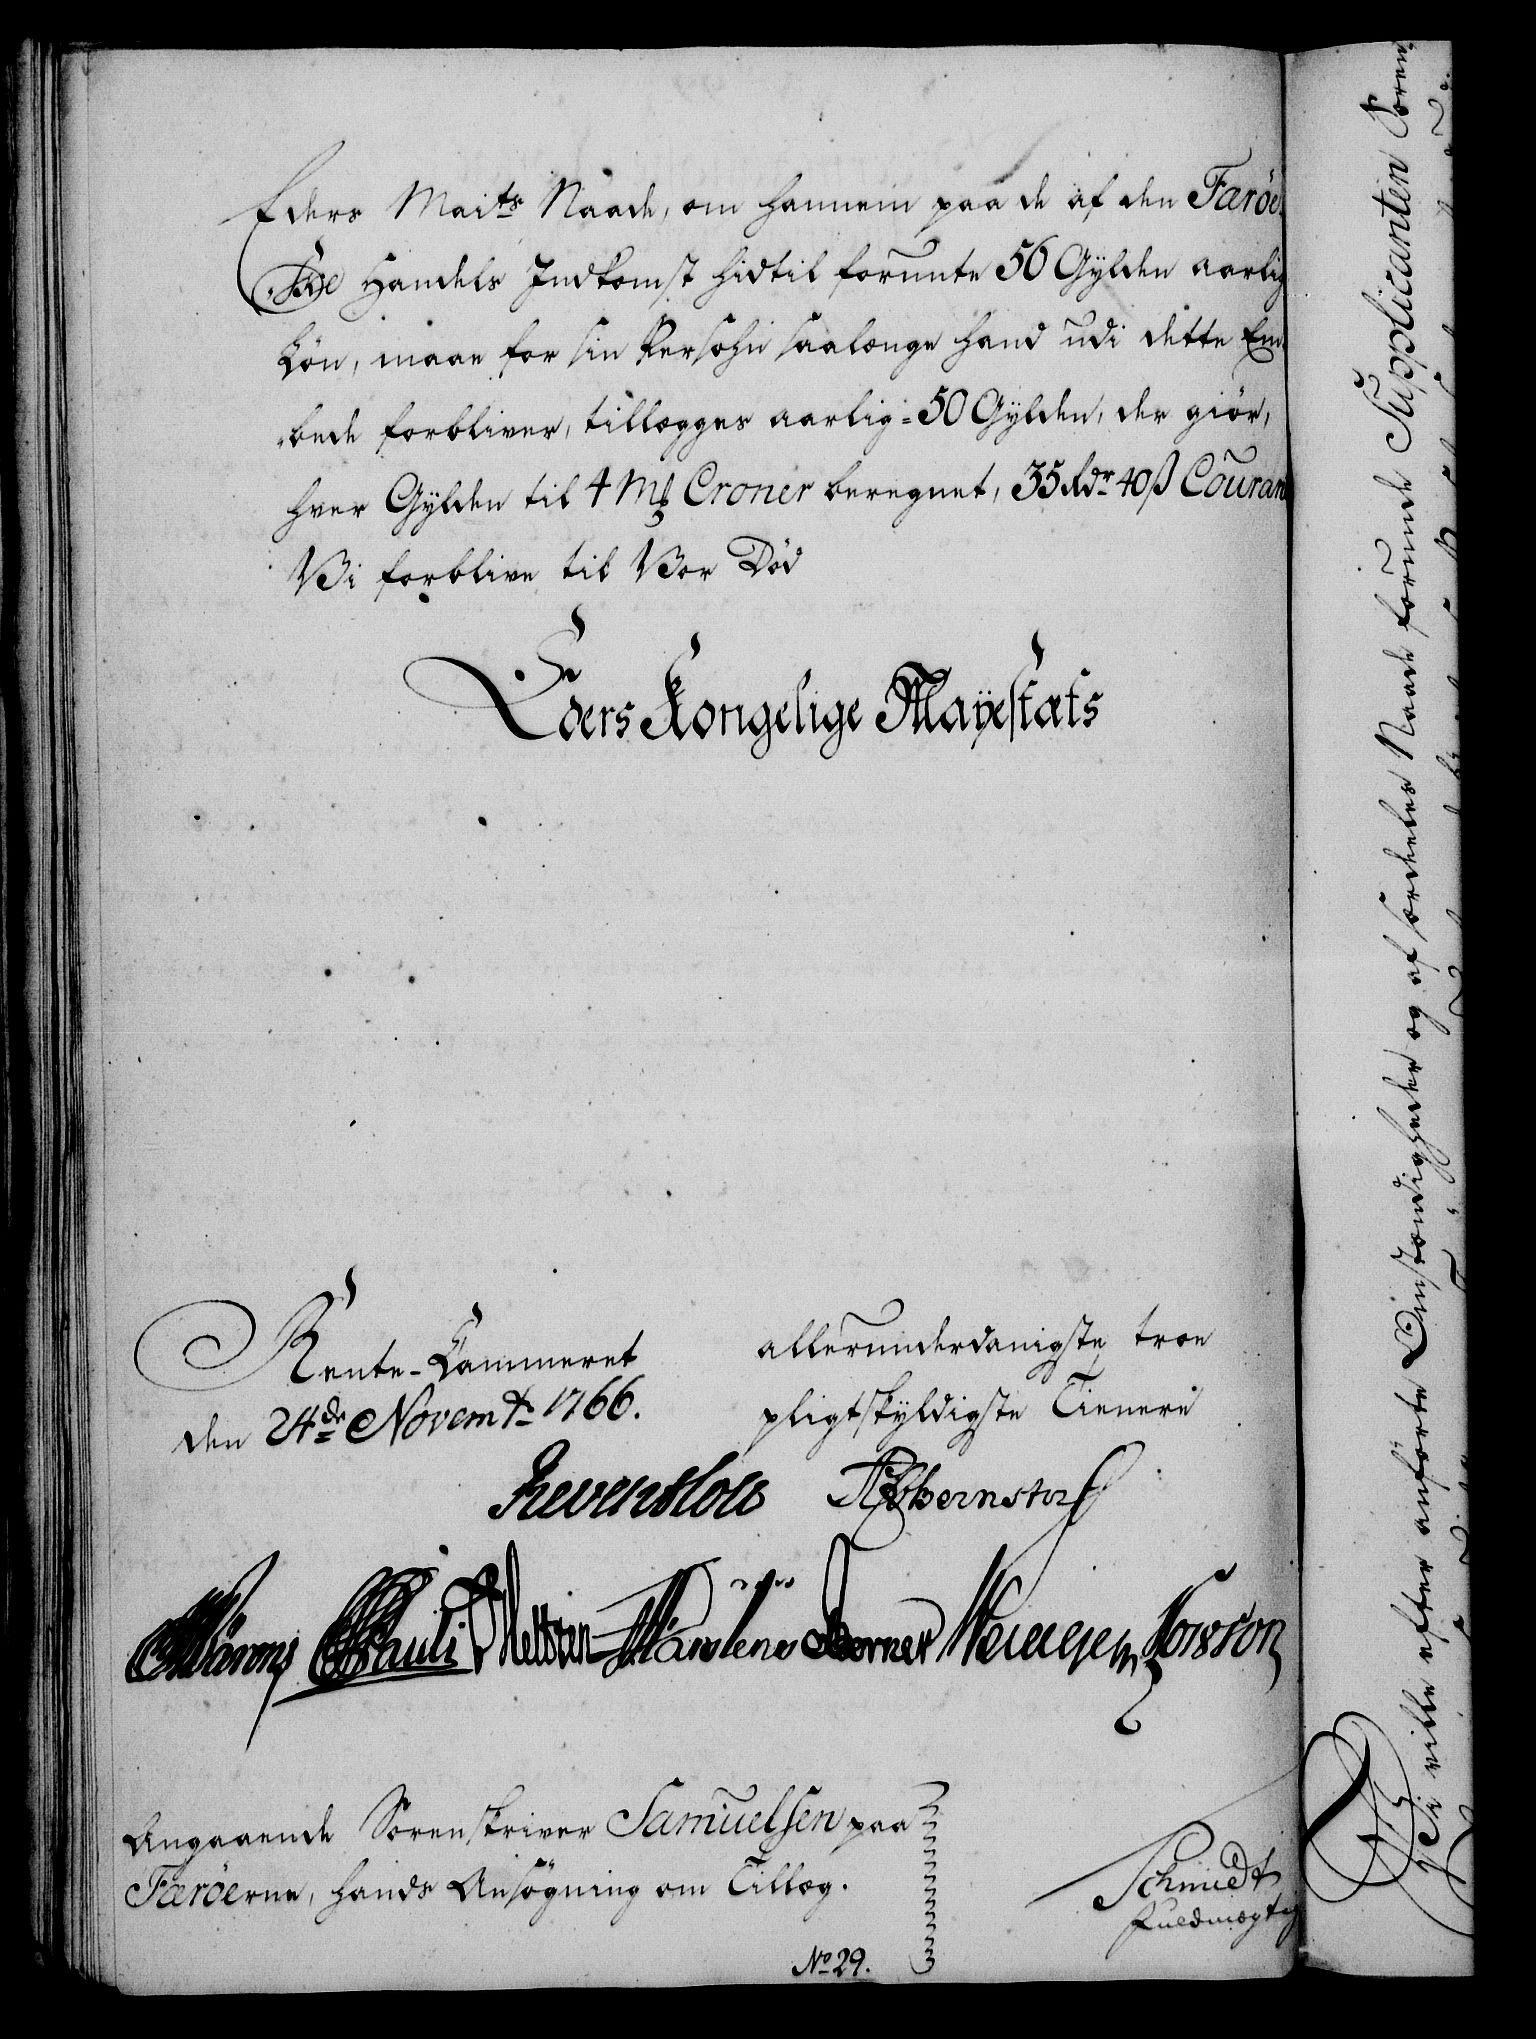 Eders Maits Naade, om hannem paa de af den Færöe
,,ske Handels Indkomst hidtil forunte 56 Gylden aarlig
Lön, maae for sin Persohn saalænge hand udi dette Em,,
,,bede forbliver, tillægges aarlig 50 Gylden, der giör,
hver Gylden til 4 Mk Croner beregnet, 35 Rdr 40 ß Couran
Vi forblive til Vor Död
Eders Kongelige Mayestæts
Rente-Cammeret
den 24de Novembr 1766.
allerunderdanigste troe
pligtskyldigste Tienere
Reventlow Bernstorff
Pauli Mellbÿe Børner
Angaaende Sorenskriver Samuelsen paa
Færöerne, hands Ansögning om Tillæg.
Schmidt
Fuldmægtig
No 29.
Vi ville efter anförte Omstændigheder og af særdeles Naade forunde Supplicanten Soren,,